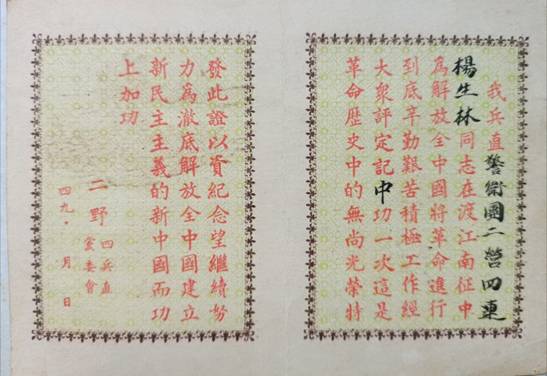 我兵直警衛團二營四連
楊生林同志在渡江南征中
為解放全中國將革命進行
到底辛勤艱苦積極工作經
大衆評定記中功一次這是
革命歷史中的無尚光榮特
發此證以資紀念望繼續努
力為澈底解放全中國建立
新民主主義的新中國而功
上加功
二野四兵直
黨委會
四九·月日